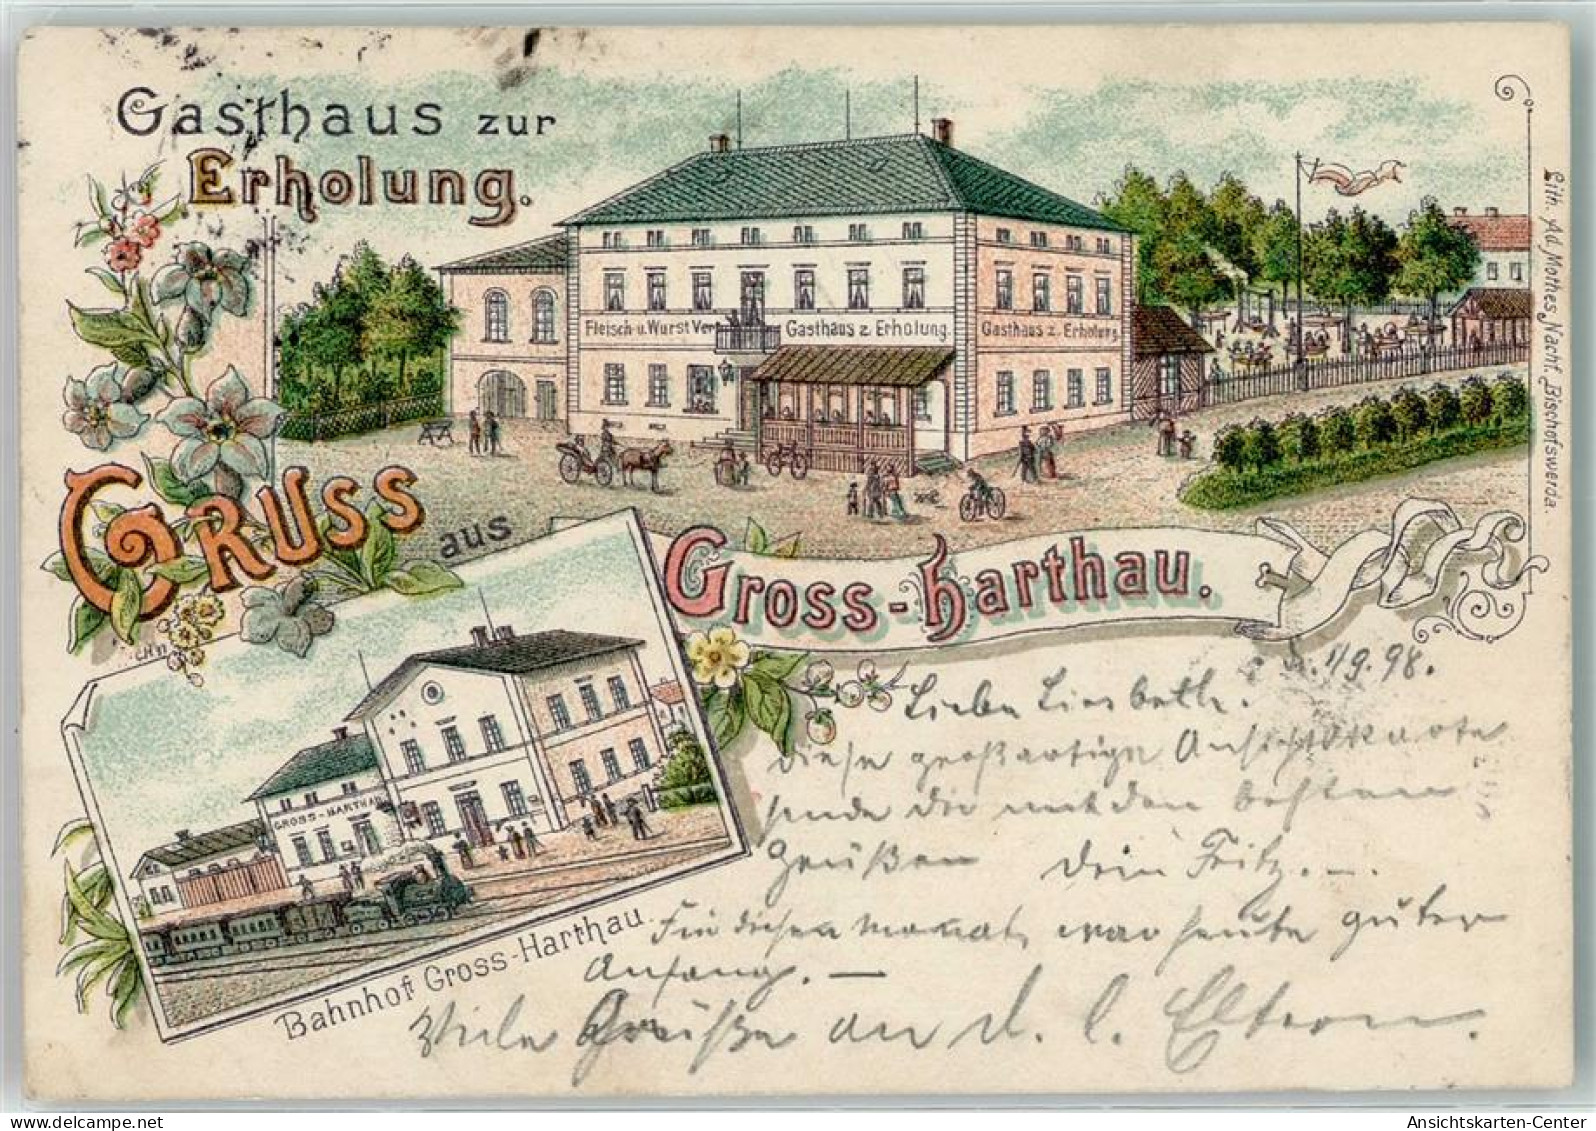 Gasthaus zur
Erholung.
Fleisch u. Wurst Ver
Gasthaus z. Erholung.
Gasthaus z. Erholung.
Lith. Ad. Mothes Nachf. Bischofswerda.
Gruss
aus
Gross-Harthau.
GROSS-HARTHAU
Bahnhof Gross-Harthau.
1/9.98.
Liebe Liesbeth.
Diese großartige Ansichtskarte
sende Dir mit den besten
Grüßen Dein Fritz.
Für diesen Monat, war heute guter
Anfang. —
Viele Grüße an d. l. Eltern.
Ansichtskarten-Center